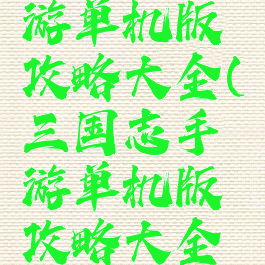 游单机版
攻略大全(
三国志手
游单机版
攻略大全